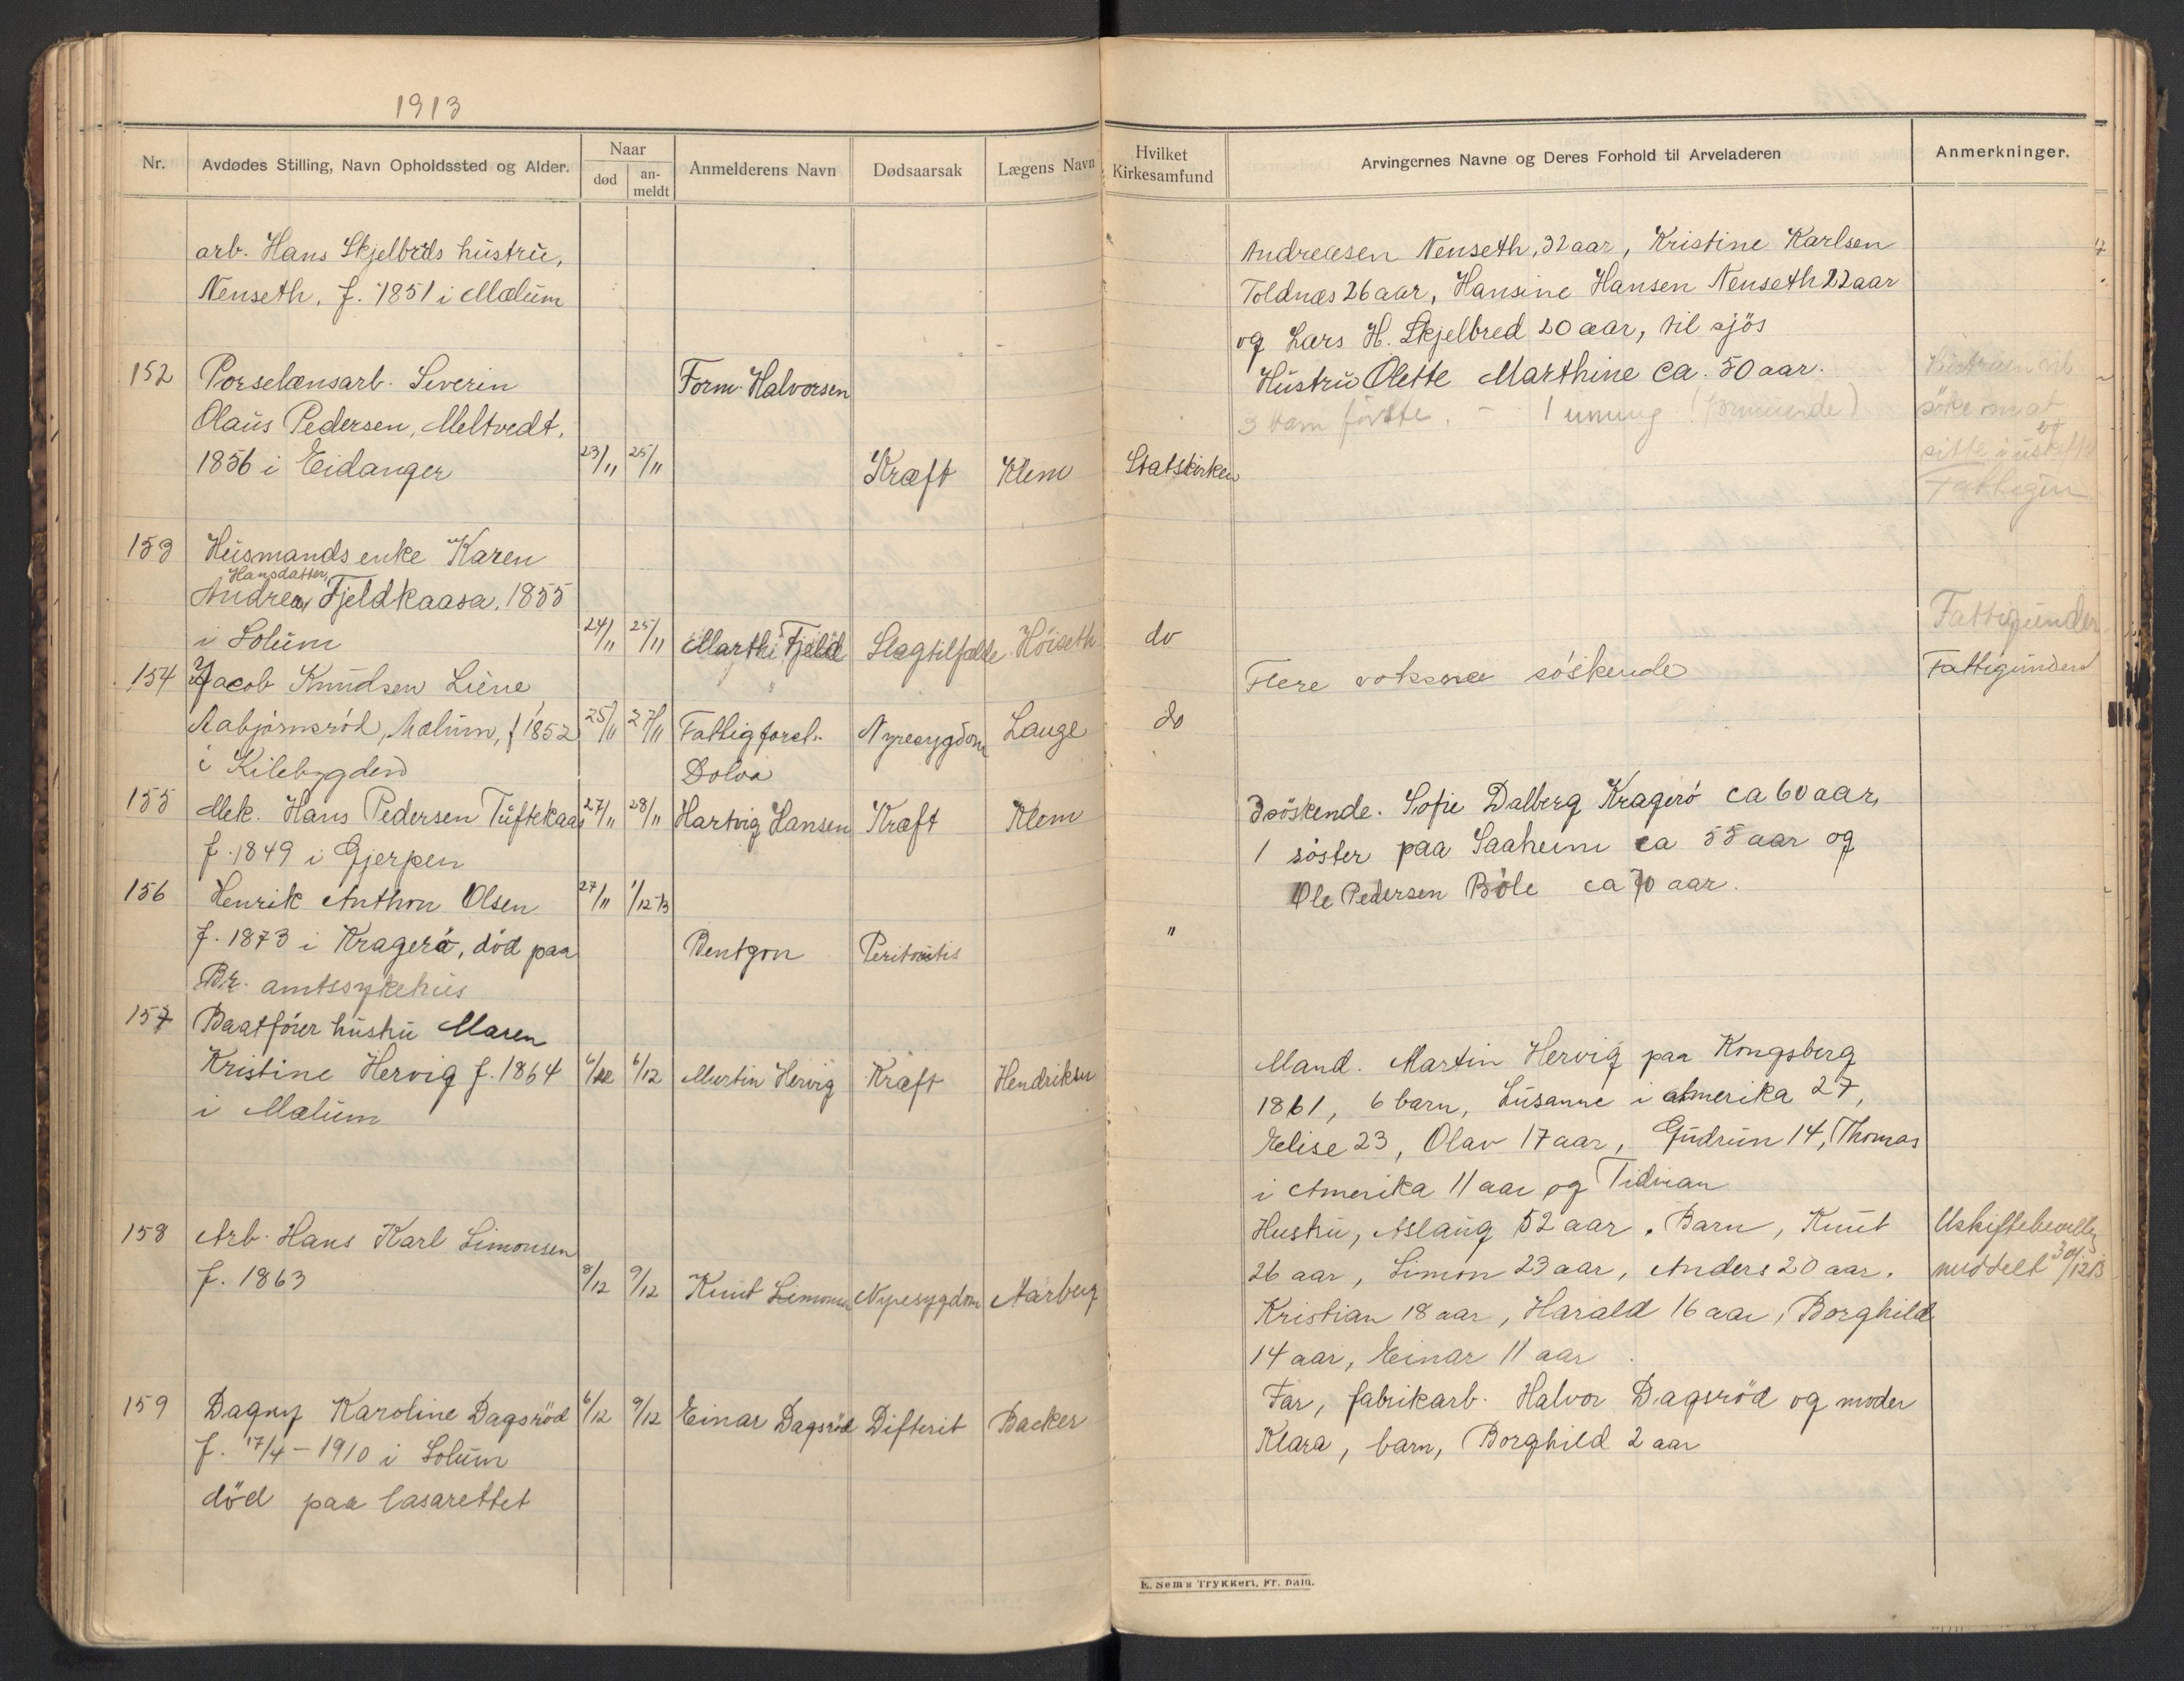 1913
Nr.
Avdødes Stilling, Navn Opholdssted og Alder.
Naar
død
an-
meldt
Anmelderens Navn
Dødsaarsak
Lægens Navn
Hvilket
Kirkesamfund
Arvingernes Navne og Deres Forhold til Arveladeren
Anmerkninger.
arb. Hans Skjelbreds hustru,
Nenseth, f. 1851 i Mælum
Andreasen Nenseth, 32 aar, Kristine Karlsen
Toldnæs 26 aar, Hansine Hansen Nenseth 22 aar
og Lars H. Skjelbred 20 aar, til sjös
152 Porselænsarb. Severin
Olaus Pedersen, Meltvedt,
1856 i Eidanger 23/11 25/11 Form. Halvorsen Kræft Klem Statskirken
Hustru Olette Marthine ca. 50 aar.
Hustruen vil
søke om at
sitte i uskifte
153 Husmandsenke Karen
Hansdatter,
Andrea Fjeldkaasa. 1855
i Solum 24/11 25/11 Marthe Fjeld Slagtilfælde Höiseth do
Fattigunder
154 Jacob Knudsen Liene
Aabjörnsröd, Mælum, f 1852 25/11 27/11 Fattigforst. Nyresygdom Lauge do
i Kilebygden Dolva
Flere voksne söskende Fattigunderst
155 Mek. Hans Pedersen Tuftekaas 27/11 28/11 Hartvig Hansen Kræft Klem
f. 1849 i Gjerpen
3 söskende. Sofie Dalberg Kragerö ca 60 aar,
1 söster paa Saaheim ca 55 aar og
Ole Pedersen Böle ca 70 aar.
156 Henrik Anthon Olsen 27/11 1/12 13
f. 1873 i Kragerö, död paa Bentzon Peritonitis "
Br. amtssykehus
157 Baatförer hustru Maren
Kristine Hervig f. 1864 6/12 6/12 Martin Hervig Kræft Hendriksen
i Mælum
Mand. Martin Hervig paa Kongsberg
1861, 6 barn, Susanne i Amerika 27,
Elise 23, Olav 17 aar, Gudrun 14, Thomas
i Amerika 11 aar og Tidman
158 Arb. Hans Karl Simonsen
f. 1863 8/12 9/12 Knut Simonsen Nyresygdom Aarberg
Hustru, Aslaug 52 aar. Barn, Knut
26 aar, Simon 23 aar, Anders 20 aar.
Kristian 18 aar, Harald 16 aar, Borghild
14 aar, Einar 11 aar
Uskiftebevilg
meddelt 30/12 13
159 Dagny Karoline Dagsröd 6/12 9/12 Einar Dagsröd Difterit Backer
f. 17/4 - 1910 i Solum
död paa lasarettet
Far, fabrikarb. Halvor Dagsröd og moder
Klara, barn, Borghild 2 aar
E. Sem's Trykkeri, Fr. hald.